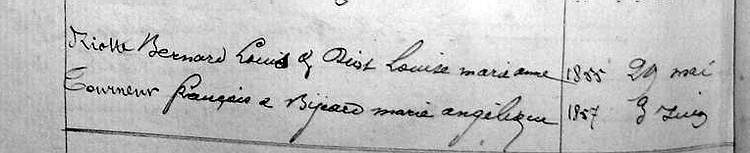 Riotte Bernard Louis & Diot Louise marie anne 1855 29 mai
Tourneur françois & Bizard marie angélique 1857 3 Juin